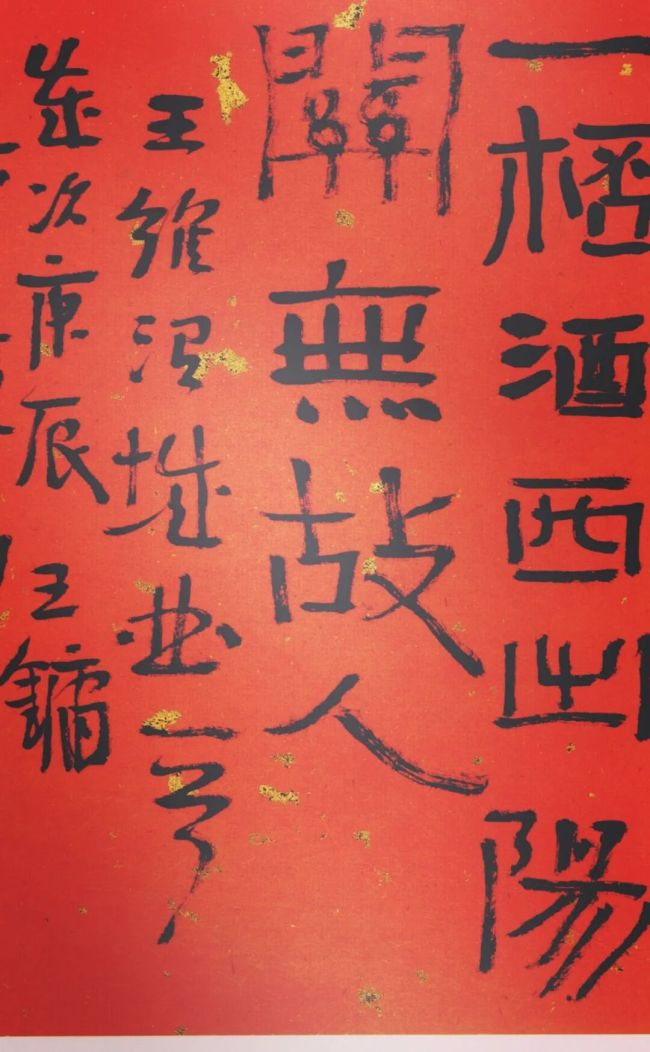 一桮酒西出陽
關無故人
王維渭城曲一首
歲次庚辰
王鏞